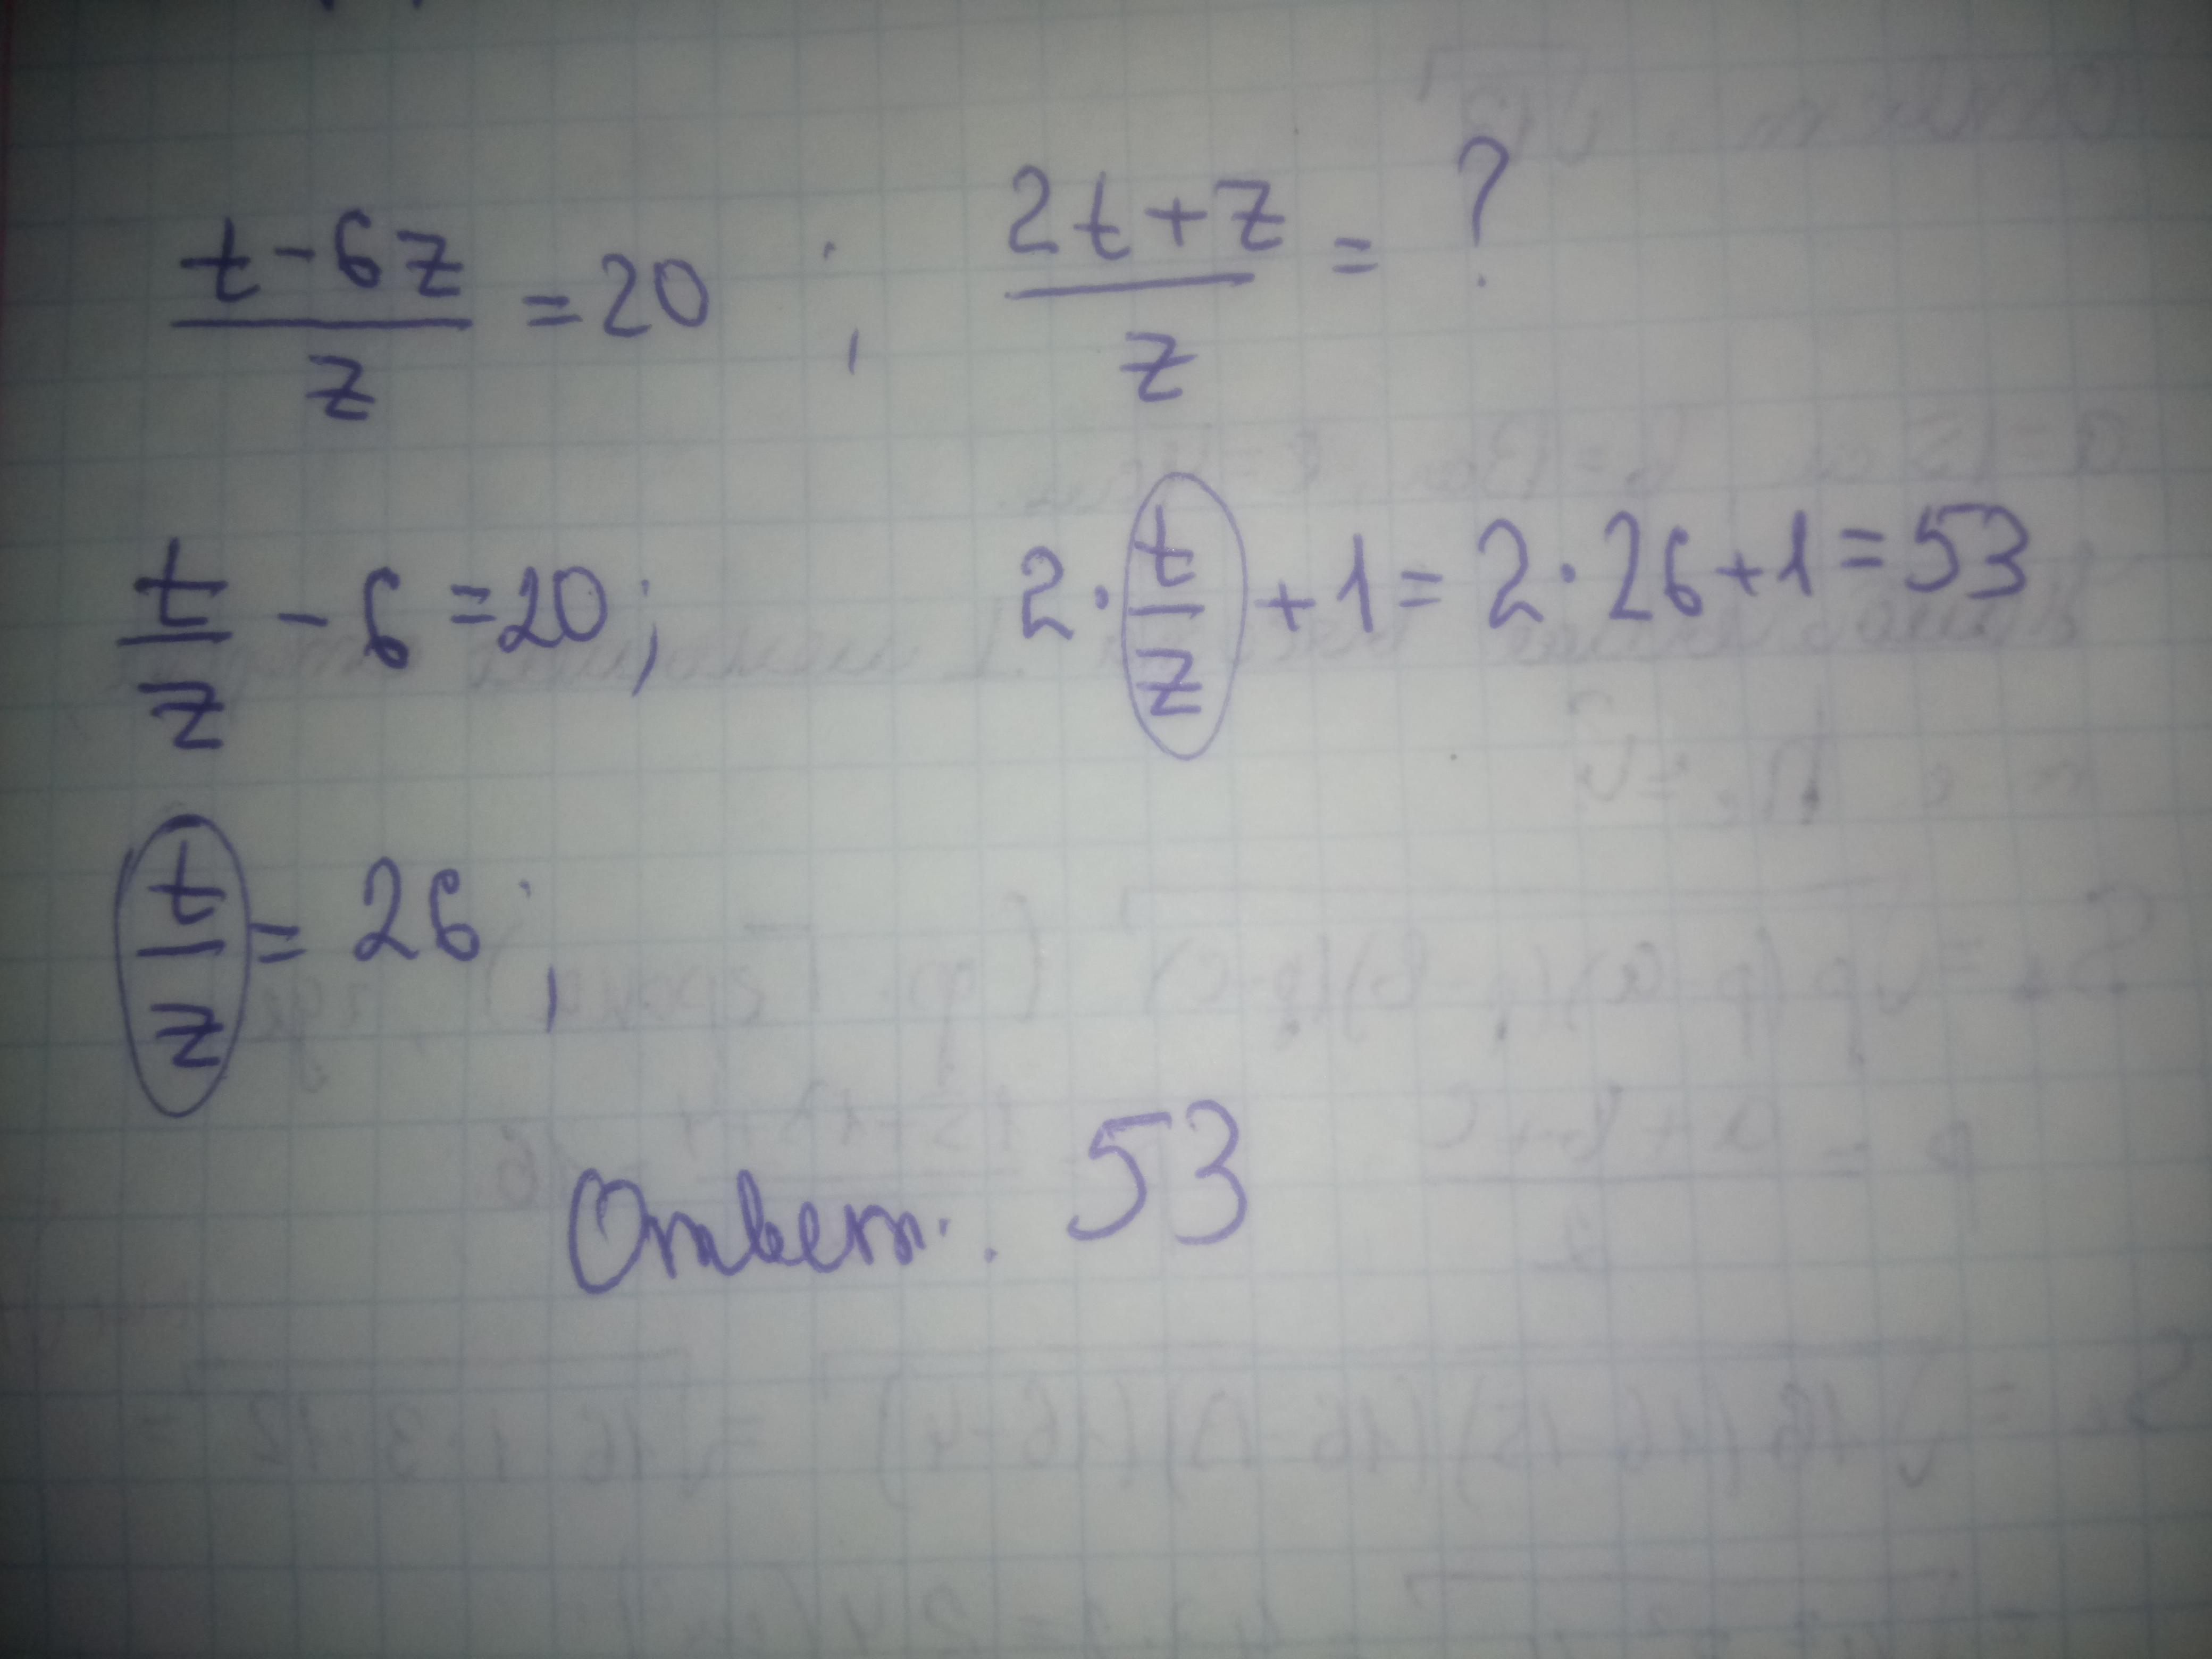 (t-6z)/z = 20 ; (2t+z)/z = ?
t/z - 6 = 20; 2·t/z + 1 = 2·26+1 = 53
t/z = 26;
Ответ: 53